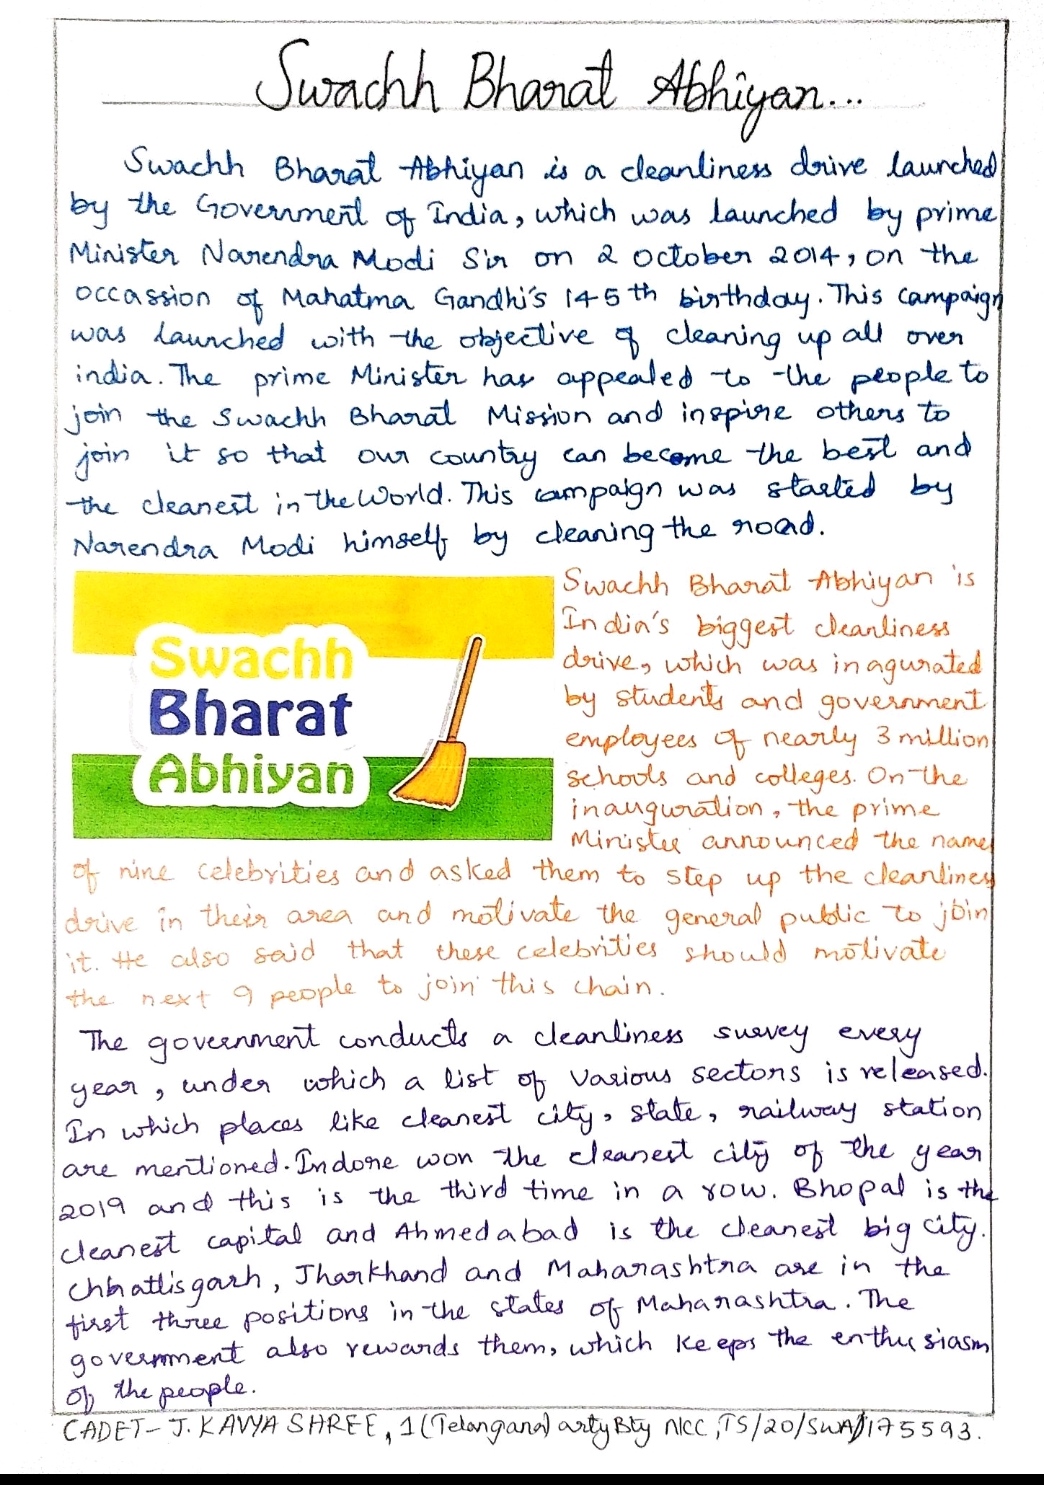 Swachh Bharat Abhiyan...
Swachh Bharat Abhiyan is a cleanliness drive launched
by the Government of India, which was launched by prime
Minister Narendra Modi Sir on 2 October 2014, on the
occassion of Mahatma Gandhi's 145th birthday. This campaign
was launched with the objective of cleaning up all over
india. The prime Minister has appealed to the people to
join the Swachh Bharat Mission and inspire others to
join it so that our country can become the best and
the cleanest in the World. This campaign was started by
Narendra Modi himself by cleaning the road.
Swachh
Bharat
Abhiyan
Swachh Bharat Abhiyan is
India's biggest cleanliness
drive, which was inagurated
by students and government
employees of nearly 3 million
schools and colleges. On the
inauguration, the prime
Minister announced the name
of nine celebrities and asked them to step up the cleanliness
drive in their area and motivate the general public to join
it. He also said that these celebrities should motivate
the next 9 people to join this chain.
The government conducts a cleanliness survey every
year, under which a list of various sectors is released.
In which places like cleanest city, state, railway station
are mentioned. Indore won the cleanest city of the year
2019 and this is the third time in a row. Bhopal is the
cleanest capital and Ahmedabad is the cleanest big city.
Chhattisgarh, Jharkhand and Maharashtra are in the
first three positions in the states of Maharashtra. The
government also rewards them, which keeps the enthusiasm
of the people.
CADET- J. KAVYA SHREE, 1 (Telangana) arty Bty NCC, TS/20/SWA/175593.